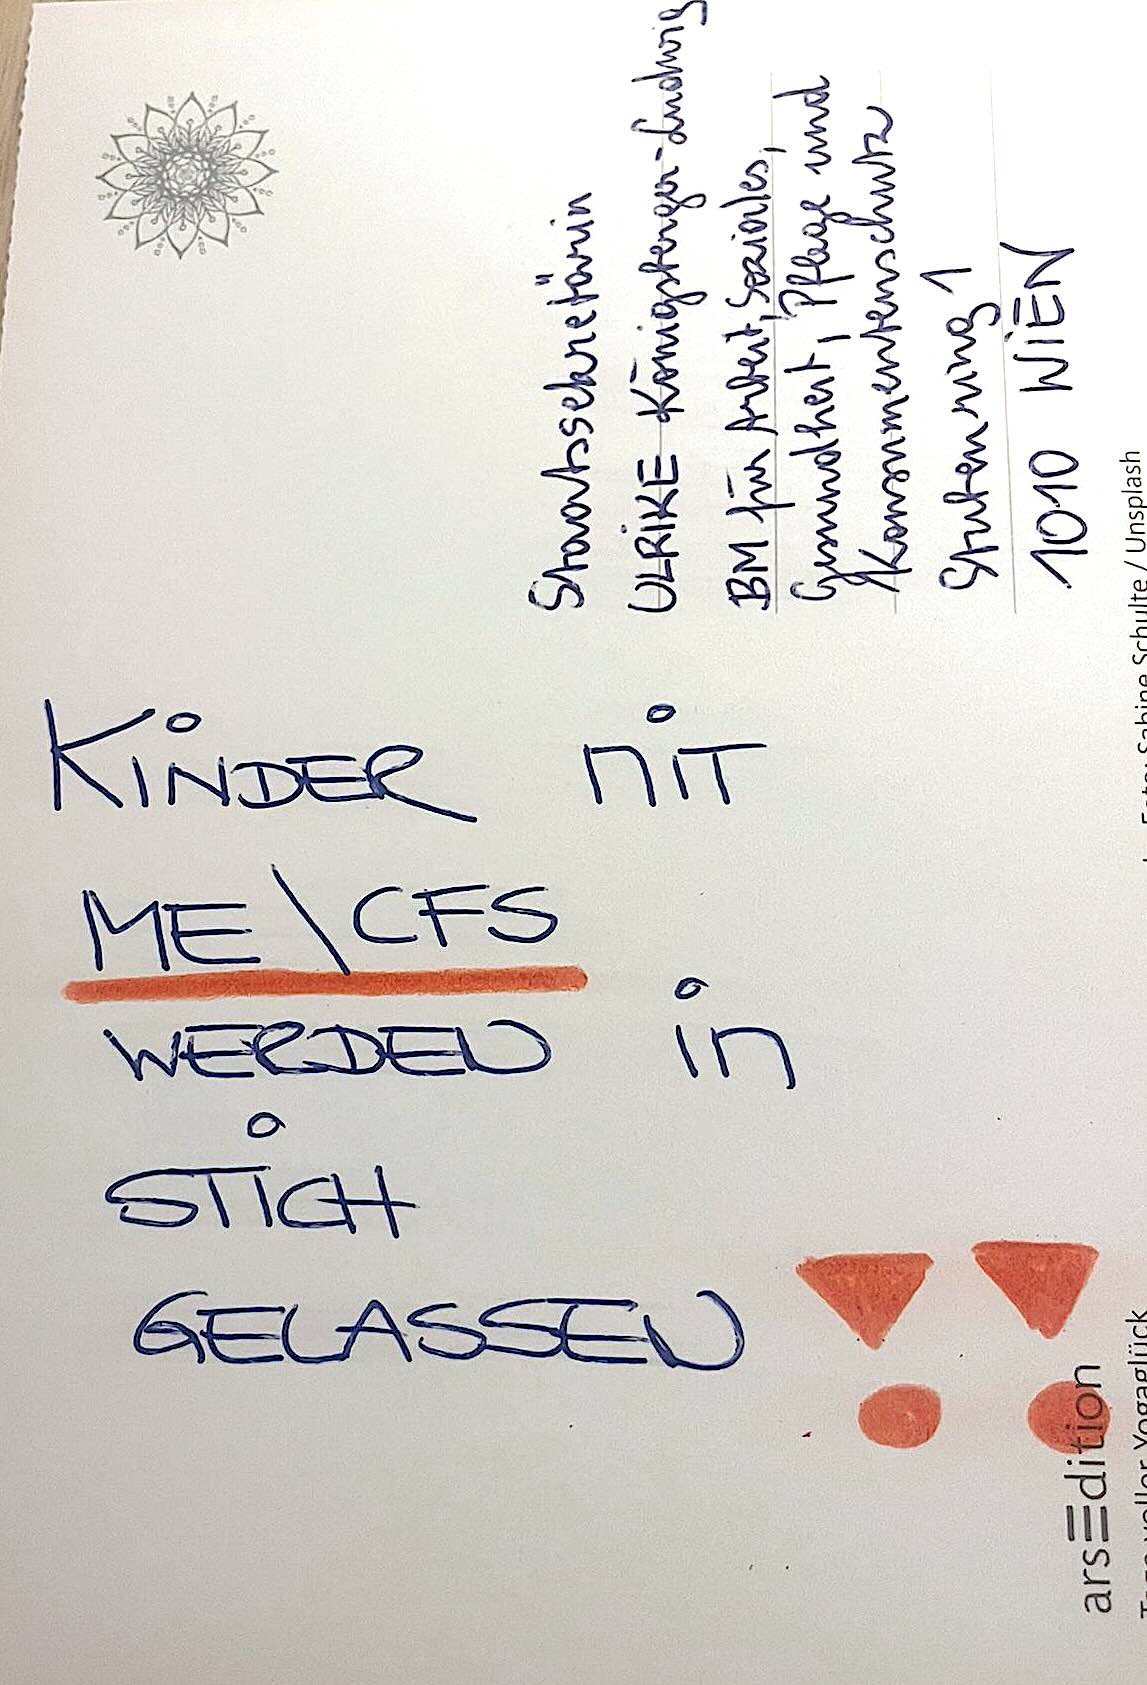 KINDER MIT
ME\CFS
WERDEN in
STICH
GELASSEN
Staatssekretärin
ULRIKE Königsberger-Ludwig
BM für Arbeit, Soziales,
Gesundheit, Pflege und
Konsumentenschutz
Stubenring 1
1010 WIEN
arsEdition
voller Yogaglück
Foto: Sabine Schulte / Unsplash